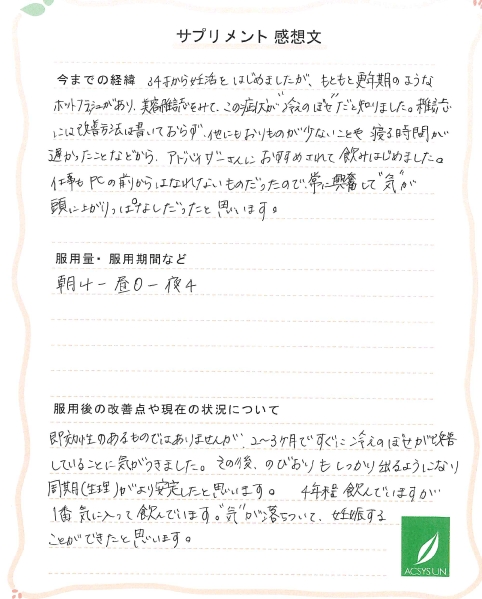 サプリメント 感想文
今までの経緯 34才から妊活をはじめましたが、もともと更年期のような
ホットフラッシュがあり、美容雑誌をみて、この症状が"冷えのぼせ"だと知りました。雑誌
には改善方法は書いておらず、他にもおりものが少ないことや 寝る時間が
遅かったことなどから、アドバイザーさんに おすすめされて 飲みはじめました。
仕事も PCの前からはなれないものだったので、常に興奮して"気"が
頭に上がりっぱなしだったと思います。
服用量・服用期間など
朝4-昼0-夜4
服用後の改善点や現在の状況について
即効性のあるものではありませんが、2〜3ヶ月ですぐに冷えのぼせが改善
していることに気がつきました。その後、のびおりもしっかり出るようになり
周期(生理)がより安定したと思います。 4年程 飲んでいますが
1番 気に入って飲んでいます。"気"が落ちついて、妊娠する
ことができたと思います。
ACSYSUN